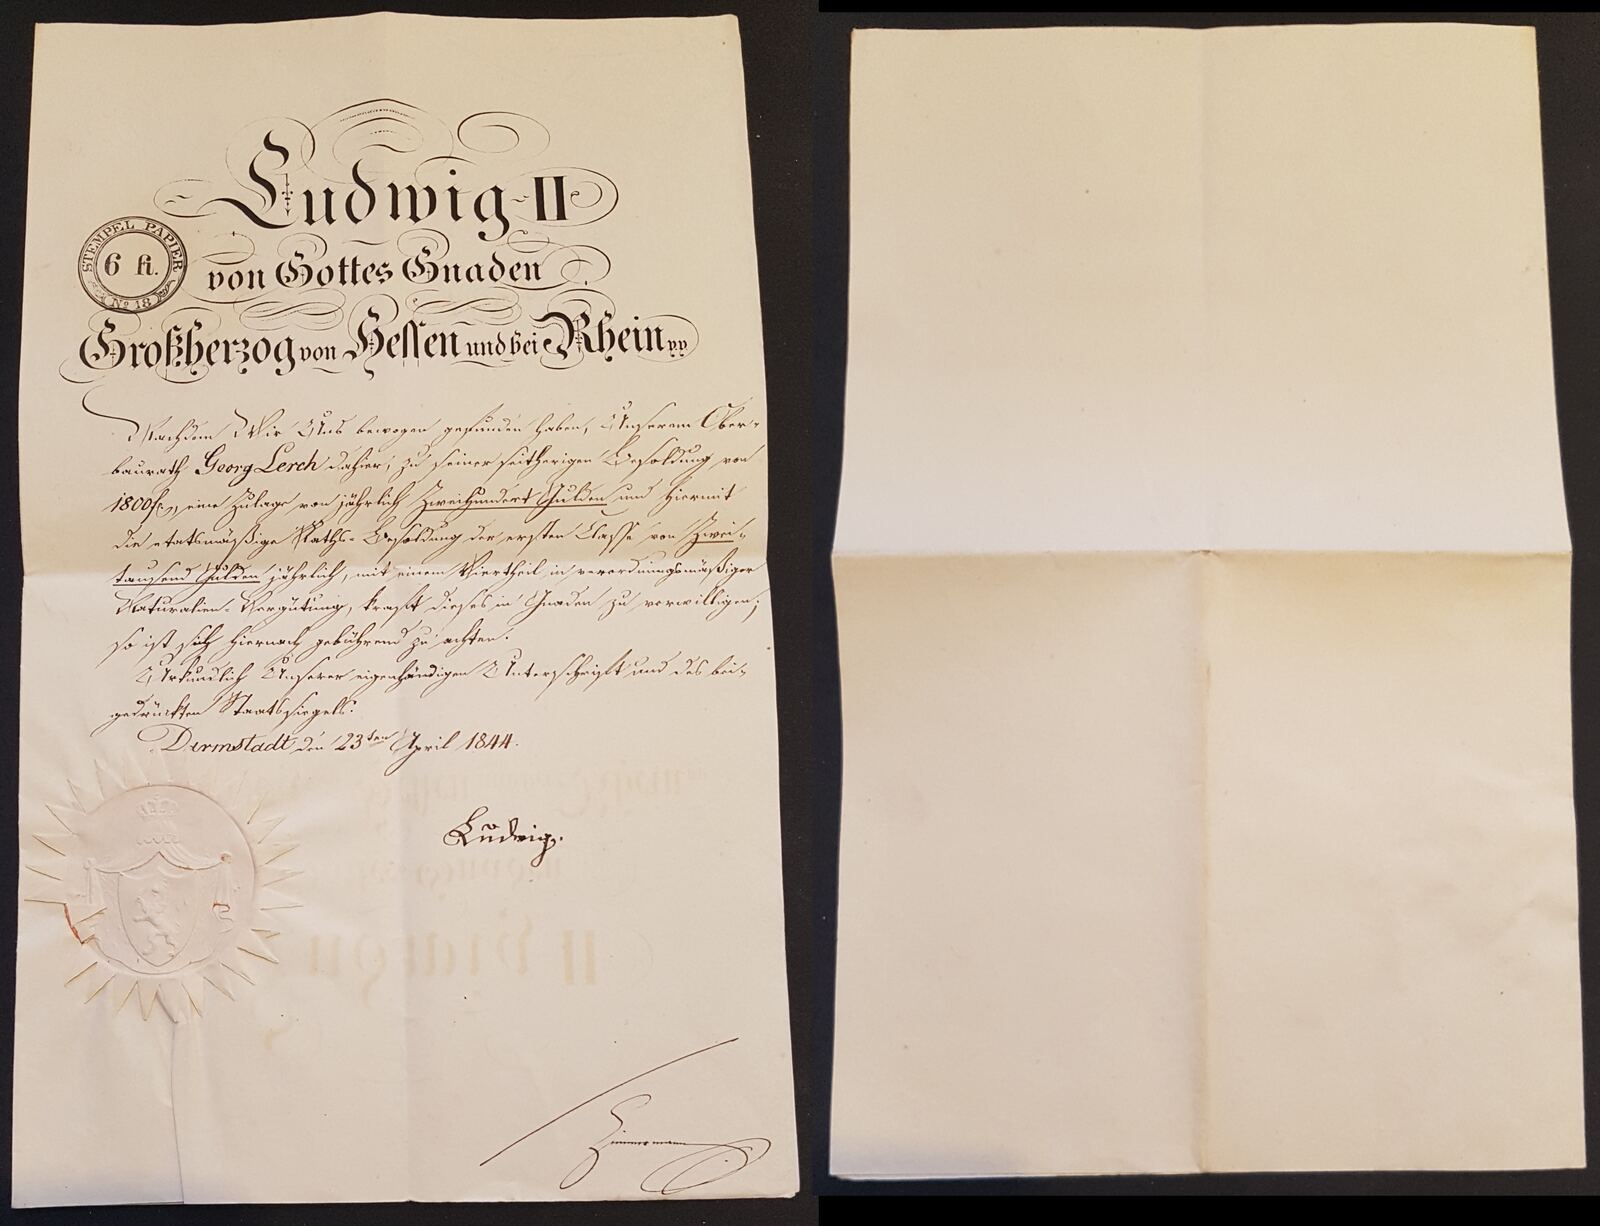 Ludwig II
von Gottes Gnaden
STEMPEL PAPIER
6 fl.
No 18
Großherzog von Hessen und bei Rhein pp
Nachdem Wir Uns bewogen gefunden haben, Unserem Ober-
baurath Georg Lerch dahier, zu seiner seitherigen Besoldung von
1800 fl., eine Zulage von jährlich Zweihundert Gulden und hiermit
die etatsmäßige Raths-Besoldung der ersten Classe von Zwei-
tausend Gulden jährlich, mit einem Viertheil in verordnungsmäßiger
Naturalien-Vergütung, kraft dieses in Gnaden zu verwilligen;
so ist sich hiernach gebührend zu achten.
Urkundlich Unserer eigenhändigen Unterschrift und des bei-
gedrückten Staatssiegels.
Darmstadt den 23ten April 1844.
Ludwig.
Zimmermann